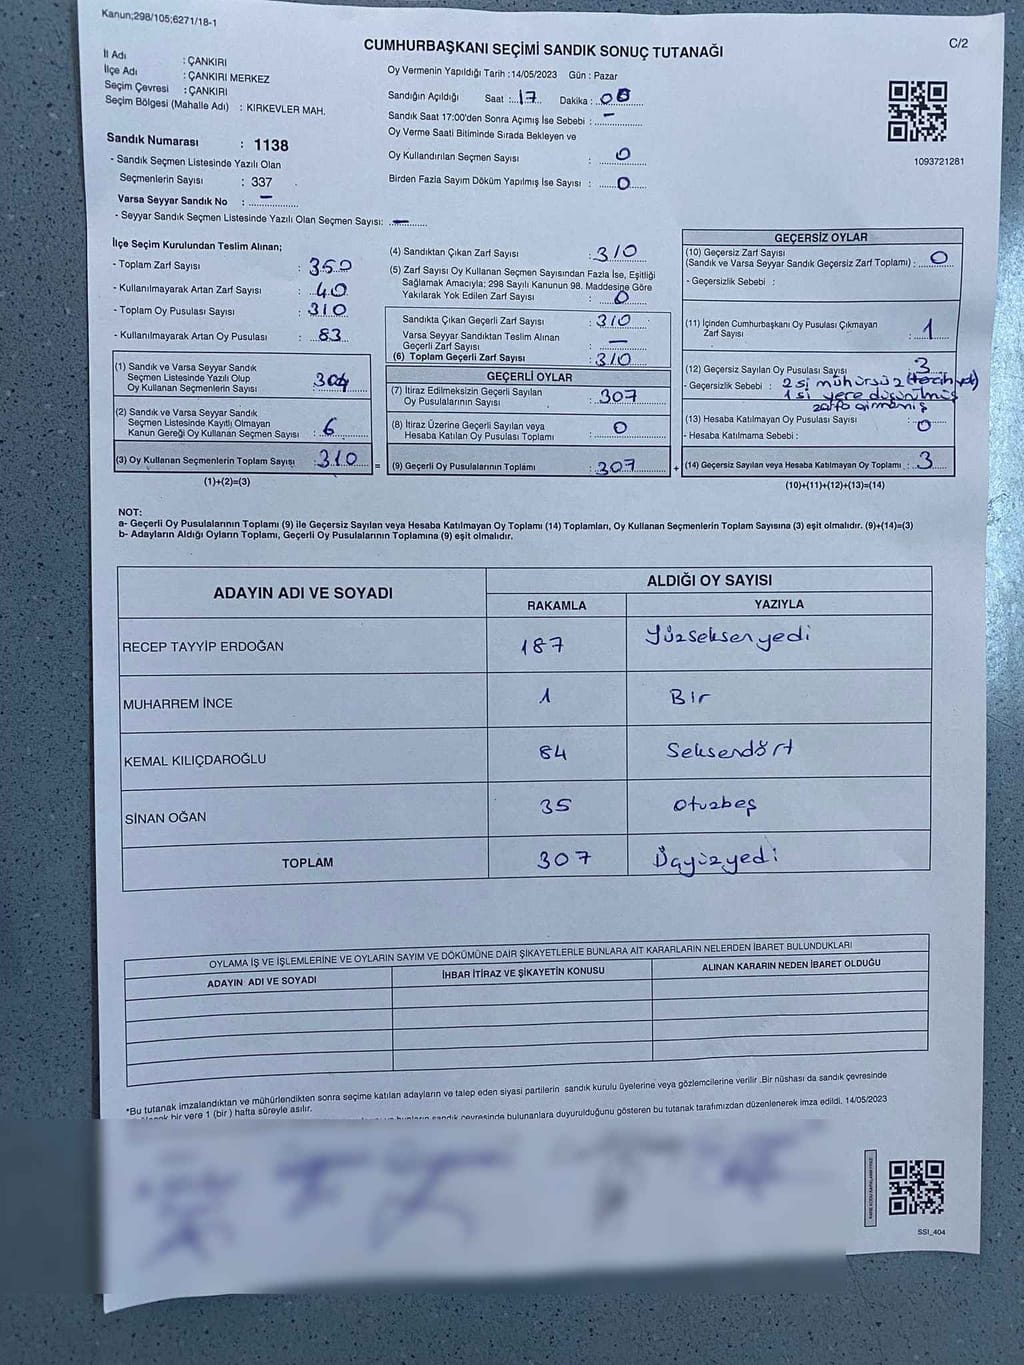 Kanun;298/105;6271/18-1
C/2
CUMHURBAŞKANI SEÇİMİ SANDIK SONUÇ TUTANAĞI
İl Adı : ÇANKIRI
İlçe Adı : ÇANKIRI MERKEZ
Seçim Çevresi : ÇANKIRI
Seçim Bölgesi (Mahalle Adı) : KIRKEVLER MAH.
Sandık Numarası : 1138
- Sandık Seçmen Listesinde Yazılı Olan
Seçmenlerin Sayısı : 337
Varsa Seyyar Sandık No : –
- Seyyar Sandık Seçmen Listesinde Yazılı Olan Seçmen Sayısı: –
Oy Vermenin Yapıldığı Tarih :14/05/2023 Gün : Pazar
Sandığın Açıldığı Saat : 17 Dakika : 00
Sandık Saat 17:00'den Sonra Açımış İse Sebebi : –
Oy Verme Saati Bitiminde Sırada Bekleyen ve
Oy Kullandırılan Seçmen Sayısı : 0
Birden Fazla Sayım Döküm Yapılmış İse Sayısı : 0
1093721281
İlçe Seçim Kurulundan Teslim Alınan;
- Toplam Zarf Sayısı : 350
- Kullanılmayarak Artan Zarf Sayısı : 40
- Toplam Oy Pusulası Sayısı : 310
- Kullanılmayarak Artan Oy Pusulası : 83
(1) Sandık ve Varsa Seyyar Sandık
Seçmen Listesinde Yazılı Olup
Oy Kullanan Seçmenlerin Sayısı : 304
(2) Sandık ve Varsa Seyyar Sandık
Seçmen Listesinde Kayıtlı Olmayan
Kanun Gereği Oy Kullanan Seçmen Sayısı : 6
(3) Oy Kullanan Seçmenlerin Toplam Sayısı : 310 =
(1)+(2)=(3)
(4) Sandıktan Çıkan Zarf Sayısı : 310
(5) Zarf Sayısı Oy Kullanan Seçmen Sayısından Fazla İse, Eşitliği
Sağlamak Amacıyla; 298 Sayılı Kanunun 98. Maddesine Göre
Yakılarak Yok Edilen Zarf Sayısı : 0
Sandıkta Çıkan Geçerli Zarf Sayısı : 310
Varsa Seyyar Sandıktan Teslim Alınan
Geçerli Zarf Sayısı : –
(6) Toplam Geçerli Zarf Sayısı : 310
GEÇERLİ OYLAR
(7) İtiraz Edilmeksizin Geçerli Sayılan
Oy Pusulalarının Sayısı : 307
(8) İtiraz Üzerine Geçerli Sayılan veya
Hesaba Katılan Oy Pusulası Toplamı : 0
(9) Geçerli Oy Pusulalarının Toplamı : 307 +
GEÇERSİZ OYLAR
(10) Geçersiz Zarf Sayısı
(Sandık ve Varsa Seyyar Sandık Geçersiz Zarf Toplamı) : 0
- Geçersizlik Sebebi :
(11) İçinden Cumhurbaşkanı Oy Pusulası Çıkmayan
Zarf Sayısı : 1
(12) Geçersiz Sayılan Oy Pusulası Sayısı : 3
- Geçersizlik Sebebi : 2 si mühürsüz (tercih yok)
1 si yere düşürülmüş
zarfa girmemiş
(13) Hesaba Katılmayan Oy Pusulası Sayısı : 0
- Hesaba Katılmama Sebebi :
(14) Geçersiz Sayılan veya Hesaba Katılmayan Oy Toplamı : 3
(10)+(11)+(12)+(13)=(14)
NOT:
a- Geçerli Oy Pusulalarının Toplamı (9) ile Geçersiz Sayılan veya Hesaba Katılmayan Oy Toplamı (14) Toplamları, Oy Kullanan Seçmenlerin Toplam Sayısına (3) eşit olmalıdır. (9)+(14)=(3)
b- Adayların Aldığı Oyların Toplamı, Geçerli Oy Pusulalarının Toplamına (9) eşit olmalıdır.
ADAYIN ADI VE SOYADI ALDIĞI OY SAYISI
RAKAMLA YAZIYLA
RECEP TAYYİP ERDOĞAN 187 Yüzseksenyedi
MUHARREM İNCE 1 Bir
KEMAL KILIÇDAROĞLU 84 Seksendört
SİNAN OĞAN 35 Otuzbeş
TOPLAM 307 Üçyüzyedi
OYLAMA İŞ VE İŞLEMLERİNE VE OYLARIN SAYIM VE DÖKÜMÜNE DAİR ŞİKAYETLERLE BUNLARA AİT KARARLARIN NELERDEN İBARET BULUNDUKLARI
ADAYIN ADI VE SOYADI İHBAR İTİRAZ VE ŞİKAYETİN KONUSU ALINAN KARARIN NEDEN İBARET OLDUĞU
*Bu tutanak imzalandıktan ve mühürlendikten sonra seçime katılan adayların ve talep eden siyasi partilerin sandık kurulu üyelerine veya gözlemcilerine verilir .Bir nüshası da sandık çevresinde
bir yere 1 (bir ) hafta süreyle asılır.
sandık çevresinde bulunanlara duyurulduğunu gösteren bu tutanak tarafımızdan düzenlenerek imza edildi. 14/05/2023
SSI_404